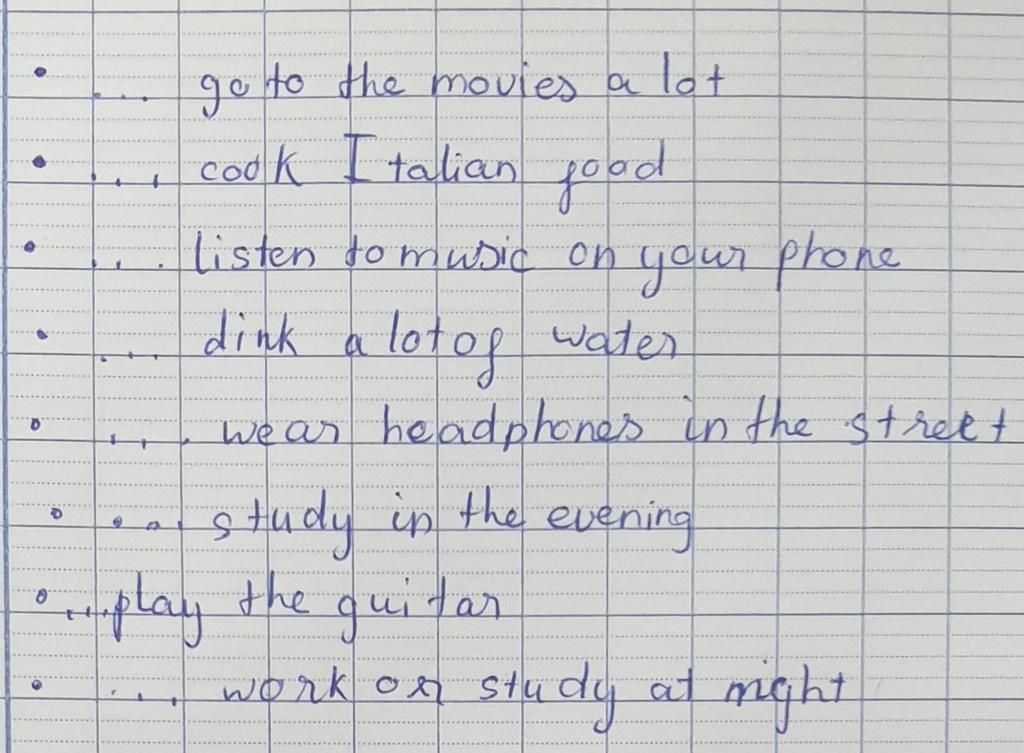 • ... go to the movies a lot
• ... cook Italian food
• ... listen to music on your phone
• ... dink a lot of water
• ... wear headphones in the street
• ... study in the evening
• ...play the guitar
• ... work or study at night